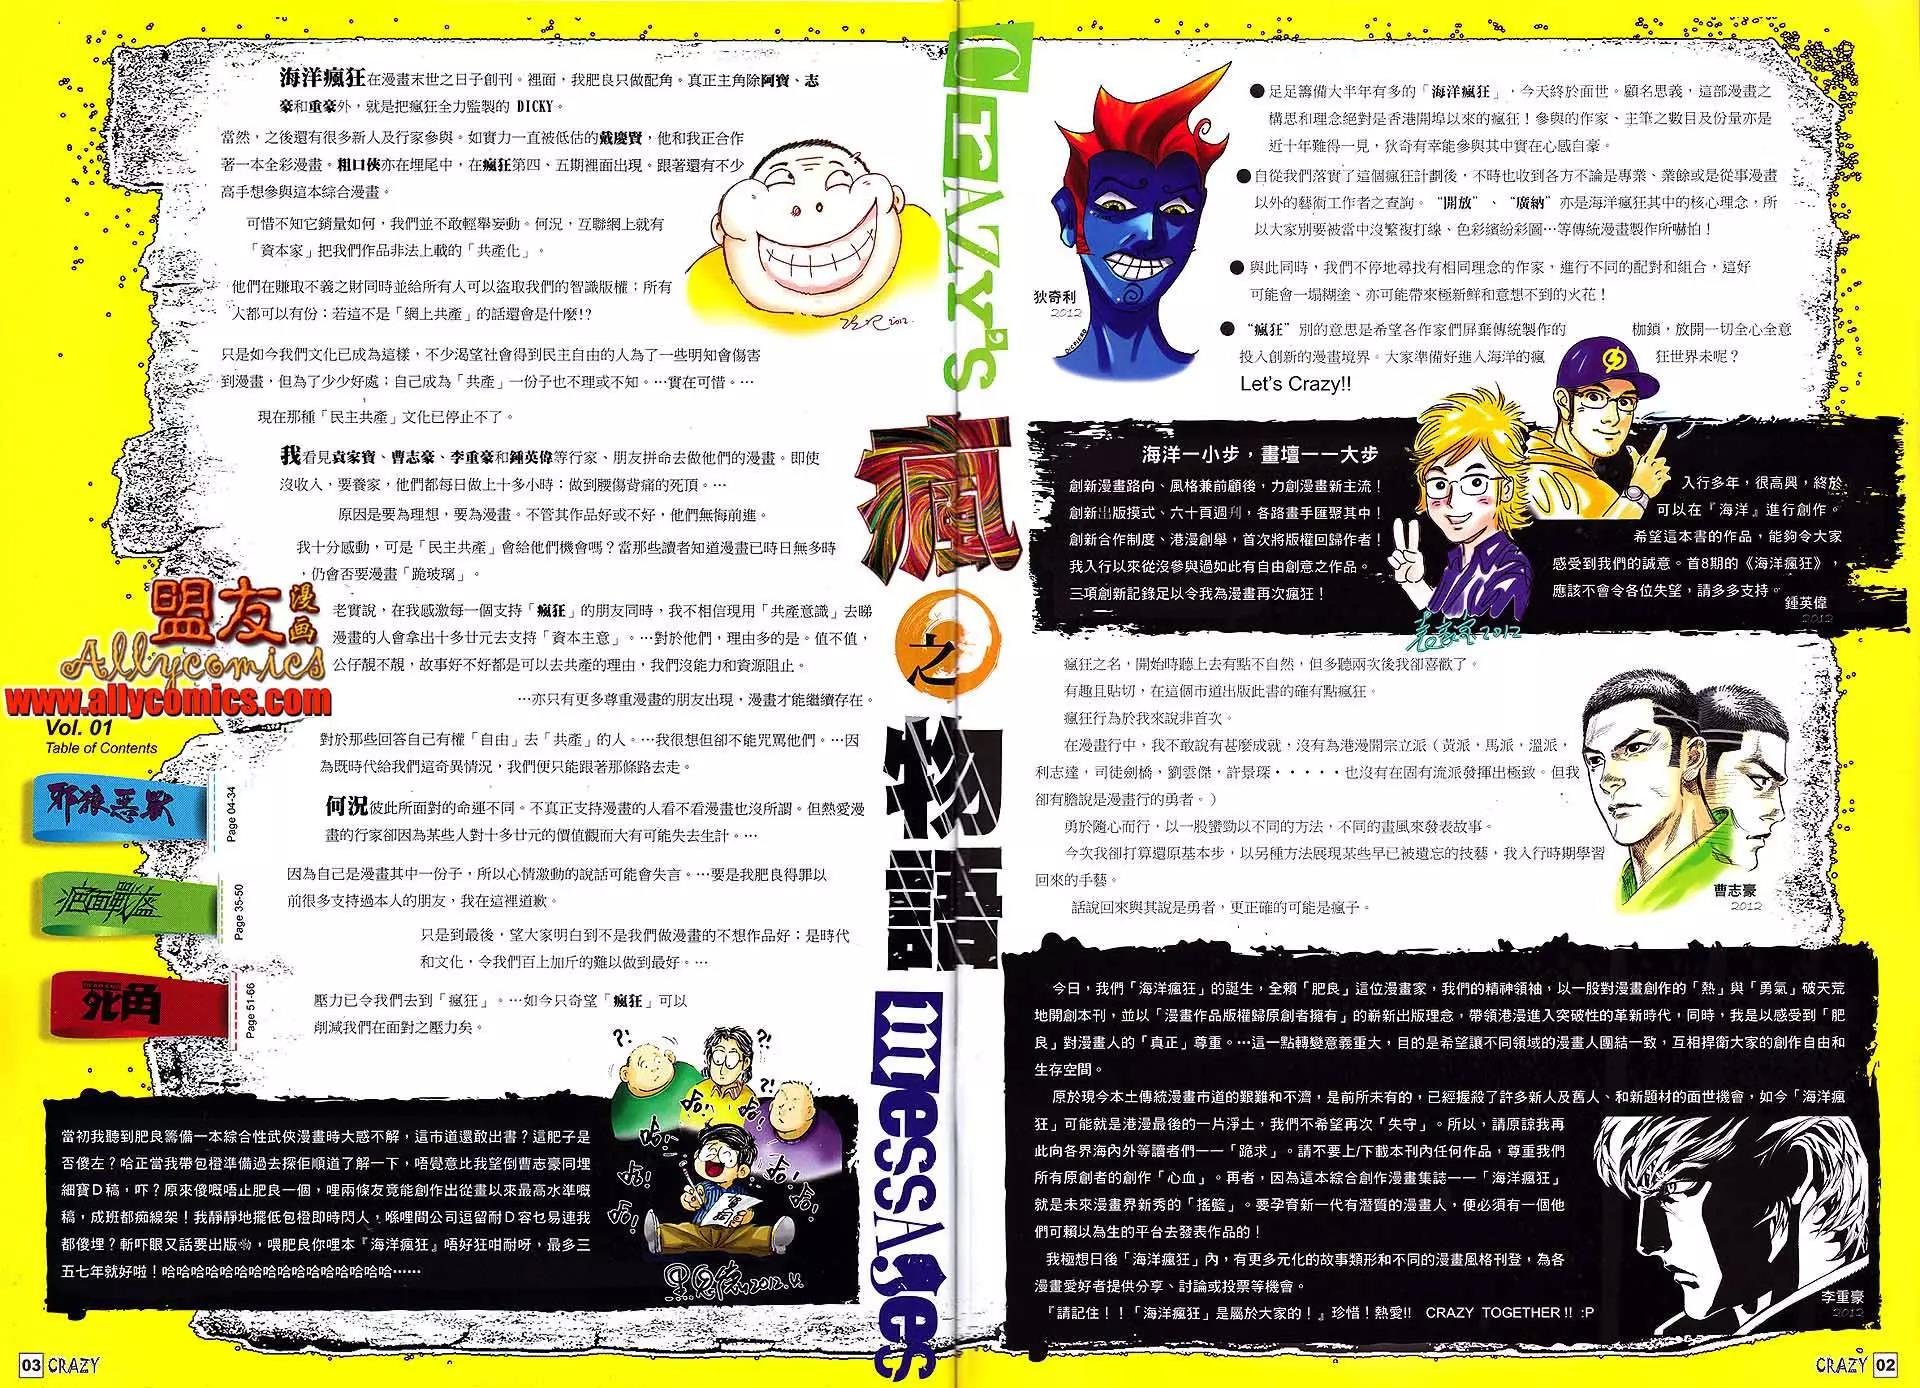 Crazy's
瘋之物語
messAges
狄奇利
2012
●足足籌備大半年有多的「海洋瘋狂」，今天終於面世。顧名思義，這部漫畫之
構思和理念絕對是香港開埠以來的瘋狂！參與的作家、主筆之數目及份量亦是
近十年難得一見，狄奇有幸能參與其中實在心感自豪。
●自從我們落實了這個瘋狂計劃後，不時也收到各方不論是專業、業餘或是從事漫畫
以外的藝術工作者之查詢。“開放”、“廣納”亦是海洋瘋狂其中的核心理念，所
以大家別要被當中沒繁複打線、色彩繽紛彩圖…等傳統漫畫製作所嚇怕！
●與此同時，我們不停地尋找有相同理念的作家，進行不同的配對和組合，這好
可能會一塌糊塗、亦可能帶來極新鮮和意想不到的火花！
●“瘋狂”別的意思是希望各作家們屏棄傳統製作的 枷鎖，放開一切全心全意
投入創新的漫畫境界。大家準備好進入海洋的瘋 狂世界未呢？
Let's Crazy!!
海洋一小步，畫壇一一大步
創新漫畫路向、風格兼前顧後，力創漫畫新主流！
創新出版摸式、六十頁週刊，各路畫手匯聚其中！
創新合作制度、港漫創舉，首次將版權回歸作者！
我入行以來從沒參與過如此有自由創意之作品。
三項創新記錄足以令我為漫畫再次瘋狂！
2012
入行多年，很高興，終於
可以在『海洋』進行創作。
希望這本書的作品，能夠令大家
感受到我們的誠意。首8期的《海洋瘋狂》，
應該不會令各位失望，請多多支持。
鍾英偉
2012
瘋狂之名，開始時聽上去有點不自然，但多聽兩次後我卻喜歡了。
有趣且貼切，在這個市道出版此書的確有點瘋狂。
瘋狂行為於我來說非首次。
在漫畫行中，我不敢說有甚麼成就，沒有為港漫開宗立派（黃派，馬派，溫派，
利志達，司徒劍橋，劉雲傑，許景琛・・・・・也沒有在固有流派發揮出極致。但我
卻有膽說是漫畫行的勇者。）
勇於隨心而行，以一股蠻勁以不同的方法，不同的畫風來發表故事。
今次我卻打算還原基本步，以另種方法展現某些早已被遺忘的技藝，我入行時期學習
回來的手藝。
話說回來與其說是勇者，更正確的可能是瘋子。
曹志豪
2012
今日，我們「海洋瘋狂」的誕生，全賴「肥良」這位漫畫家，我們的精神領袖，以一股對漫畫創作的「熱」與「勇氣」破天荒
地開創本刊，並以「漫畫作品版權歸原創者擁有」的嶄新出版理念，帶領港漫進入突破性的革新時代，同時，我是以感受到「肥
良」對漫畫人的「真正」尊重。…這一點轉變意義重大，目的是希望讓不同領域的漫畫人團結一致，互相捍衛大家的創作自由和
生存空間。
原於現今本土傳統漫畫市道的艱難和不濟，是前所未有的，已經握殺了許多新人及舊人、和新題材的面世機會，如今「海洋瘋
狂」可能就是港漫最後的一片淨土，我們不希望再次「失守」。所以，請原諒我再
此向各界海內外等讀者們一一「跪求」。請不要上/下載本刊內任何作品，尊重我們
所有原創者的創作「心血」。再者，因為這本綜合創作漫畫集誌一一「海洋瘋狂」
就是未來漫畫界新秀的「搖籃」。要孕育新一代有潛質的漫畫人，便必須有一個他
們可賴以為生的平台去發表作品的！
我極想日後「海洋瘋狂」內，有更多元化的故事類形和不同的漫畫風格刊登，為各
漫畫愛好者提供分享、討論或投票等機會。
『請記住！！「海洋瘋狂」是屬於大家的！』珍惜！熱愛!! CRAZY TOGETHER !! :P
李重豪
2012
CRAZY 02
海洋瘋狂在漫畫末世之日子創刊。裡面，我肥良只做配角。真正主角除阿寶、志
豪和重豪外，就是把瘋狂全力監製的 DICKY。
當然，之後還有很多新人及行家參與。如實力一直被低估的戴慶賢，他和我正合作
著一本全彩漫畫。粗口俠亦在埋尾中，在瘋狂第四、五期裡面出現。跟著還有不少
高手想參與這本綜合漫畫。
可惜不知它銷量如何，我們並不敢輕舉妄動。何況，互聯網上就有
「資本家」把我們作品非法上載的「共產化」。
他們在賺取不義之財同時並給所有人可以盜取我們的智識版權；所有
人都可以有份；若這不是「網上共產」的話還會是什麼!?
只是如今我們文化已成為這樣，不少渴望社會得到民主自由的人為了一些明知會傷害
到漫畫，但為了少少好處；自己成為「共產」一份子也不理或不知。…實在可惜。…
現在那種「民主共產」文化已停止不了。
我看見袁家寶、曹志豪、李重豪和鍾英偉等行家、朋友拼命去做他們的漫畫。即使
沒收入，要養家，他們都每日做上十多小時；做到腰傷背痛的死頂。…
原因是要為理想，要為漫畫。不管其作品好或不好，他們無悔前進。
我十分感動，可是「民主共產」會給他們機會嗎？當那些讀者知道漫畫已時日無多時
，仍會否要漫畫「跪玻璃」。
老實說，在我感激每一個支持「瘋狂」的朋友同時，我不相信現用「共產意識」去睇
漫畫的人會拿出十多廿元去支持「資本主意」。…對於他們，理由多的是。值不值，
公仔靚不靚，故事好不好都是可以去共產的理由，我們沒能力和資源阻止。
…亦只有更多尊重漫畫的朋友出現，漫畫才能繼續存在。
對於那些回答自己有權「自由」去「共產」的人。…我很想但卻不能咒罵他們。…因
為既時代給我們這奇異情況，我們便只能跟著那條路去走。
何況彼此所面對的命運不同。不真正支持漫畫的人看不看漫畫也沒所謂。但熱愛漫
畫的行家卻因為某些人對十多廿元的價值觀而大有可能失去生計。…
因為自己是漫畫其中一份子，所以心情激動的說話可能會失言。…要是我肥良得罪以
前很多支持過本人的朋友，我在這裡道歉。
只是到最後，望大家明白到不是我們做漫畫的不想作品好；是時代
和文化，令我們百上加斤的難以做到最好。…
壓力已令我們去到「瘋狂」。…如今只奇望「瘋狂」可以
削減我們在面對之壓力矣。
2012
盟友漫画
Allycomics
www.allycomics.com
Vol. 01
Table of Contents
邪狼惡獸
Page 04-34
疤面戰盔
Page 35-50
死角
Page 51-66
當初我聽到肥良籌備一本綜合性武俠漫畫時大惑不解，這市道還敢出書？這肥子是
否傻左？哈正當我帶包橙準備過去探佢順道了解一下，唔覺意比我望倒曹志豪同埋
細寶Ｄ稿，吓？原來傻嘅唔止肥良一個，哩兩條友竟能創作出從畫以來最高水準嘅
稿，成班都痴線架！我靜靜地擺低包橙即時閃人，喺哩間公司逗留耐Ｄ容乜易連我
都傻埋？斬吓眼又話要出版喲，喂肥良你哩本『海洋瘋狂』唔好狂咁耐呀，最多三
五七年就好啦！哈哈哈哈哈哈哈哈哈哈哈哈哈哈哈哈……
?! ?! ?!
2012
03 CRAZY